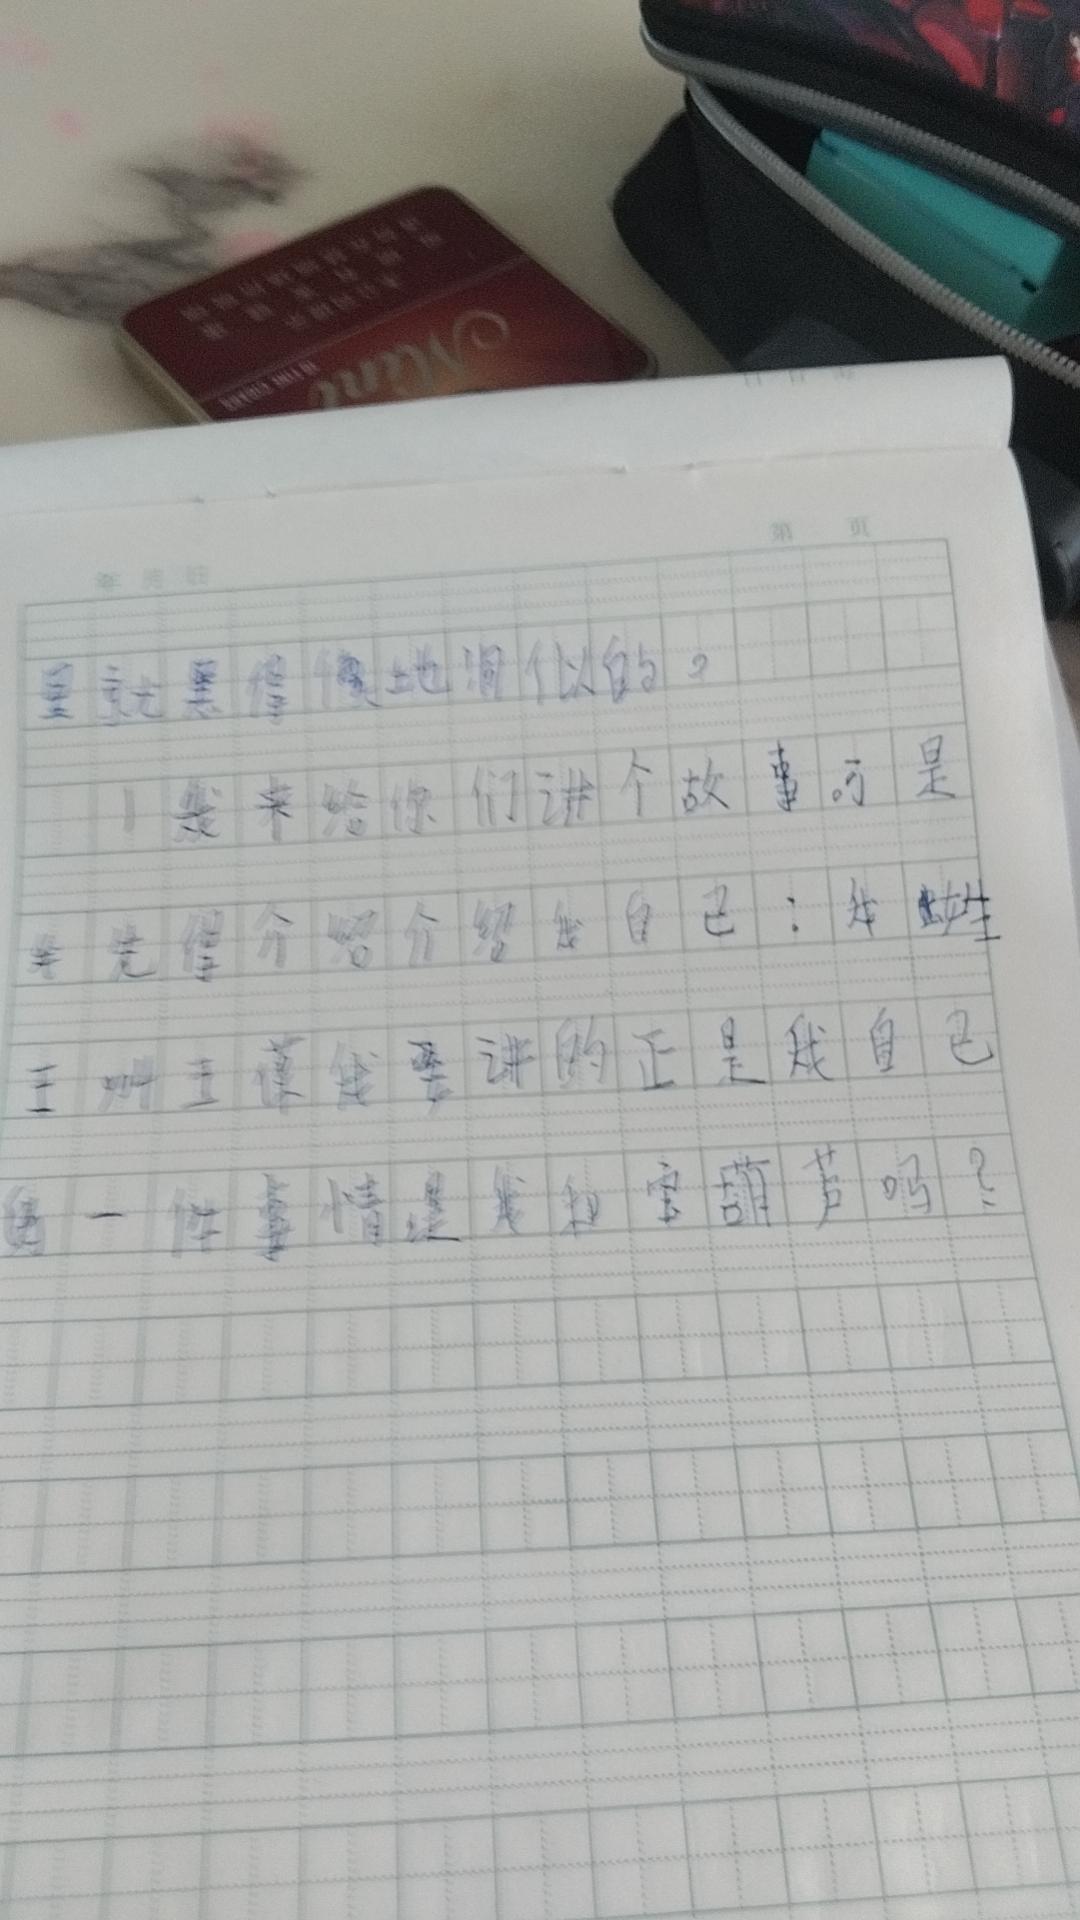 Mint
第 页
年 月 日
里就黑得像地洞似的。
我来给你们讲个故事可是
先得介绍介绍我自己：我姓
王叫王葆我要讲的正是我自己
的一件事情是我和宝葫芦吗？